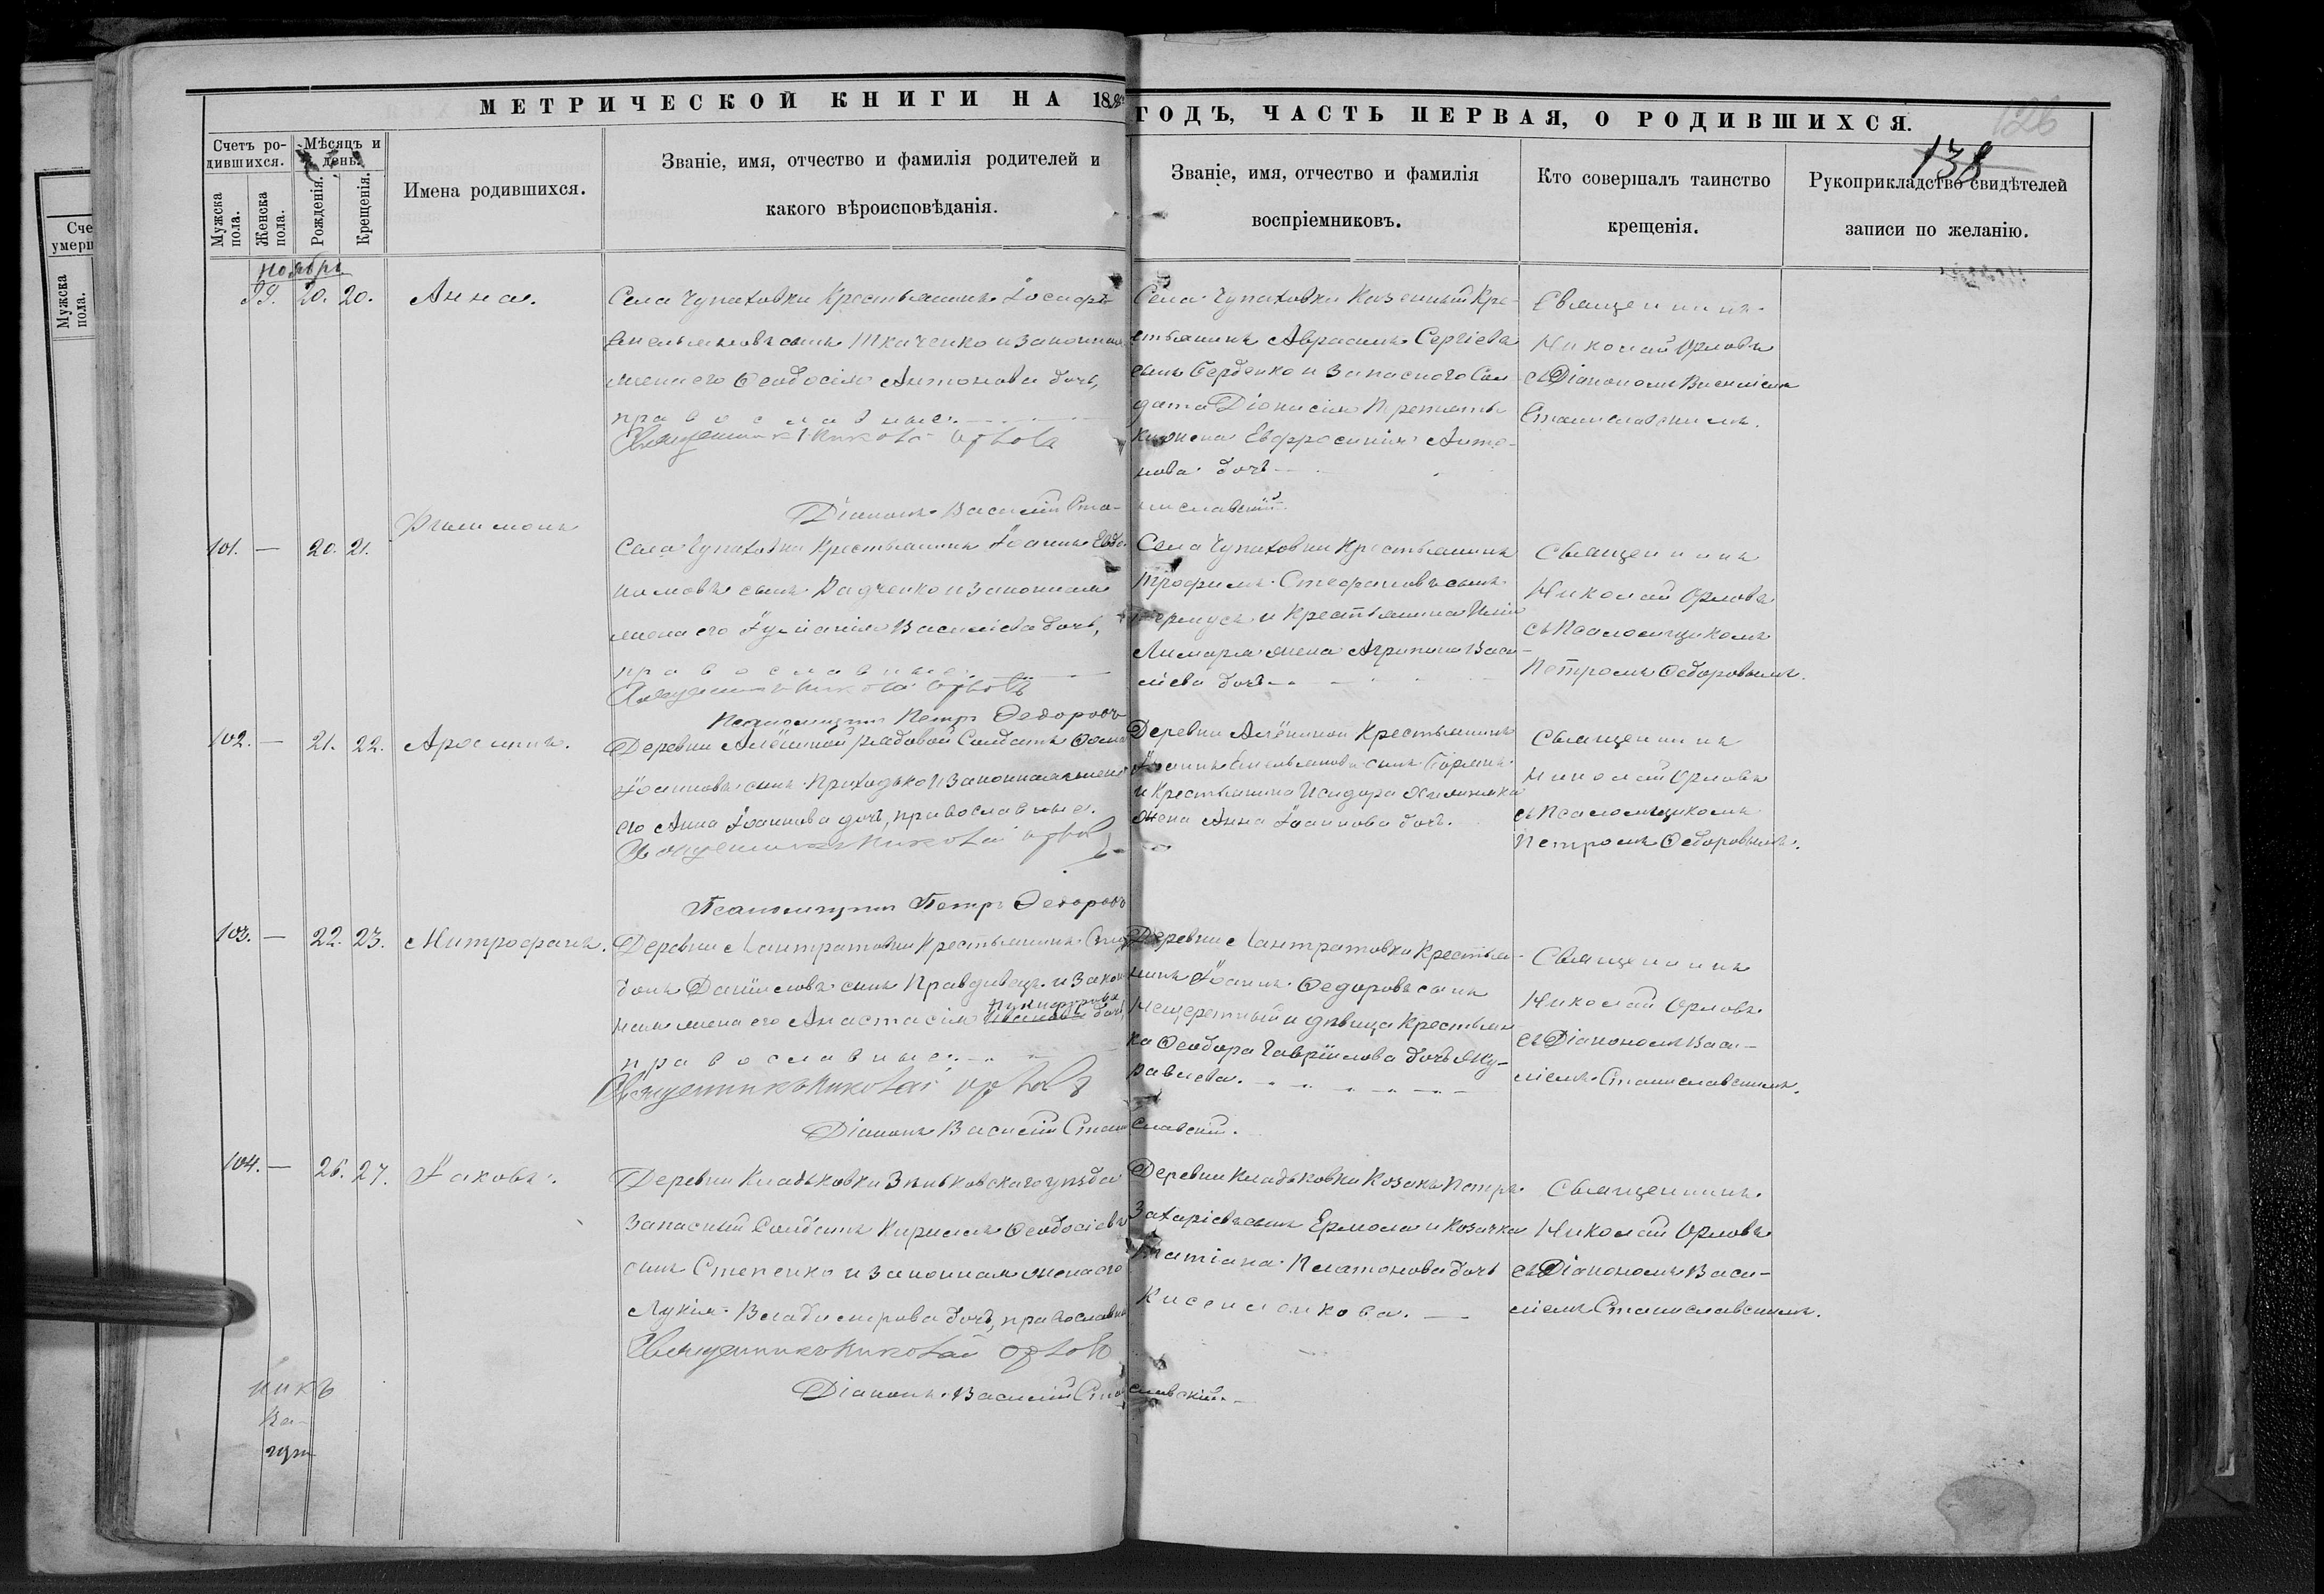 МЕТРИЧЕСКОЙ КНИГИ НА 18
ГОДЪ, ЧАСТЬ ПЕРВАЯ, О РОДИВШИХСЯ.
126
138
Счетъ ро-
дившихся.
Мужска
пола.
Женска
пола.
Мѣсяцъ и
день.
Рожденія.
Крещенія.
Имена родившихся.
Званіе, имя, отчество и фамилія родителей и
какого вѣроисповѣданія.
Званіе, имя, отчество и фамилія
воспріемниковъ.
Кто совершалъ таинство
крещенія.
Рукоприкладство свидѣтелей
записи по желанію.
Сче
умерш
Мужска
пола.
ноябрь
99. 20. 20. Анна.
Села Чупаховки Крестьянинъ Іосифъ
Емельяновъ сынъ Ткаченко и законная
жена его Ѳеодосія Антонова дочь,
православные.
Священникъ Николай Орловъ
Діаконъ Василій Ста-
ниславскій.
Села Чупаховки Казенный Кре-
стьянинъ Аврамъ Сергіевъ
сынъ Берденко и запаснаго Сол-
дата Діонисія
жена Евфросинія Анто-
нова дочь
Священникъ
Николай Орловъ
съ Діакономъ Василіемъ
Станиславскимъ.
101. — 20. 21. Филимонъ
Села Чупаховки Крестьянинъ Іоаннъ Евдо-
кимовъ сынъ Радченко и законная
жена его Іуліанія Василіева дочь,
православные.
Священникъ Николай Орловъ
Псаломщикъ Петръ Ѳедоровъ
Села Чупаховки Крестьянинъ
Трофимъ Стефановъ сынъ
и Крестьянина Иліи
Лимаря жена Агрипина Васи-
ліева дочь
Священникъ
Николай Орловъ
съ Псаломщикомъ
Петромъ Ѳедоровымъ.
102. — 21. 22.
Деревни Алёшной рядовой Солдатъ Ѳома
Іоанновъ сынъ Приходько и законная жена
его Анна Іоаннова дочь, православные.
Священникъ Николай Орловъ
Псаломщикъ Петръ Ѳедоровъ
Деревни Алёшной Крестьянинъ
Іоаннъ Емельяновъ сынъ
и Крестьянина Исидора
жена Анна Іоаннова дочь.
Священникъ
Николай Орловъ
съ Псаломщикомъ
Петромъ Ѳедоровымъ.
103. — 22. 23. Митрофанъ.
Деревни Лантратовки Крестьянинъ Спири-
донъ Даніиловъ сынъ Правдивецъ и закон-
ная жена его Анастасія Никифорова дочь,
православные.
Священникъ Николай Орловъ
Діаконъ Василій Стани-
славскій.
Деревни Лантратовки Крестья-
нинъ Іоаннъ Ѳедоровъ сынъ
Нещеретный и дѣвица Крестьян-
ка Ѳеодора Гавріилова дочь Жу-
равлева.
Священникъ
Николай Орловъ
съ Діакономъ Васи-
ліемъ Станиславскимъ.
104. — 26. 27. Іаковъ.
Деревни Кладьковки Зѣньковскаго уѣзда
запасный Солдатъ Кириллъ Ѳеодосіевъ
сынъ Степенко и законная жена его
Лукія Владимірова дочь, православные
Священникъ Николай Орловъ
Діаконъ Василій Стани-
славскій.
Деревни Кладьковки Козакъ Петръ
Захаріевъ сынъ Ермола и козачка
Татіана Платонова дочь
Киселенкова.
Священникъ
Николай Орловъ
съ Діакономъ Васи-
ліемъ Станиславскимъ.